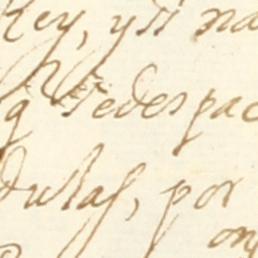 Rey, y si na
q̃ se despac
dulas, por